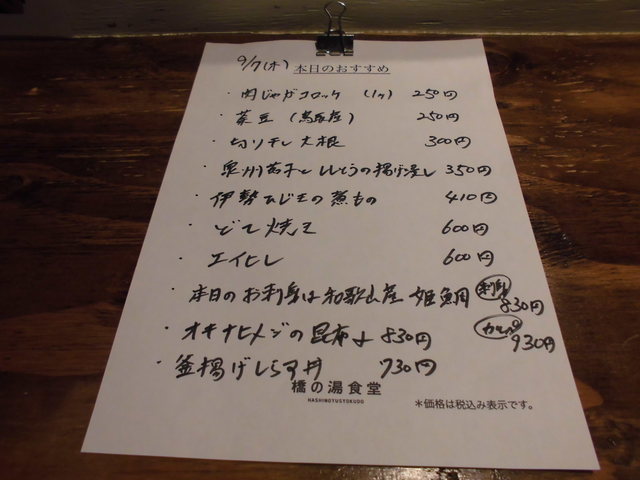 9/7(木) 本日のおすすめ
・肉じゃがコロッケ (1ヶ) 250円
・菜豆 (鳥取産) 250円
・切り干し大根 300円
・泉州茄子とししとうの揚げ浸し 350円
・伊勢ひじきの煮もの 410円
・どて焼き 600円
・エイヒレ 600円
・本日のお刺身は和歌山産 姫鯛 刺身 830円
カルパ 930円
・オキナヒメジの昆布〆 830円
・釜揚げしらす丼 730円
橋の湯食堂
HASHINOYUSYOKUDO
＊価格は税込み表示です。